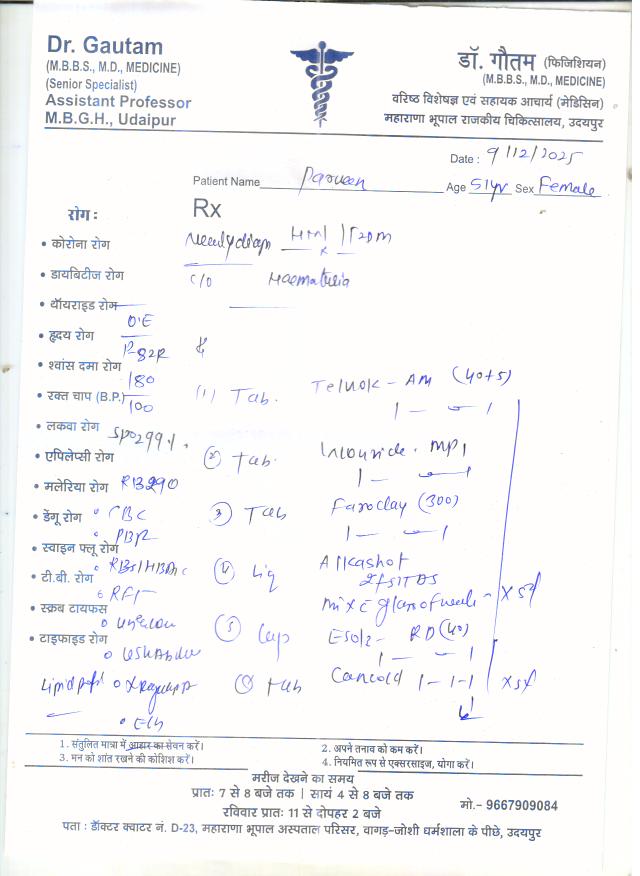 Dr. Gautam
(M.B.B.S., M.D., MEDICINE)
(Senior Specialist)
Assistant Professor
M.B.G.H., Udaipur
डॉ. गौतम (फिजिशियन)
(M.B.B.S., M.D., MEDICINE)
वरिष्ठ विशेषज्ञ एवं सहायक आचार्य (मेडिसिन)
महाराणा भूपाल राजकीय चिकित्सालय, उदयपुर
Date : 9/12/2025
Patient Name Parveen Age 51yr Sex Female
रोग :
Rx
• कोरोना रोग
HTN / T2DM
• डायबिटीज रोग
C/O Haematuria
• थॉयराइड रोग
O/E
• हृदय रोग
P-82R
• श्वांस दमा रोग
180
• रक्त चाप (B.P.) 100
(1) Tab. Telnok - AM (40+5)
1 - - 1
• लकवा रोग
SPO2 99%.
• एपिलेप्सी रोग
(2) Tab.
1 - - 1
• मलेरिया रोग RBS 290
(3) Tab Faroclay (300)
1 - - 1
• डेंगू रोग
CBC
PBF
• स्वाइन फ्लू रोग
• टी.बी. रोग
RBS/HBA1c
(4) Liq Alkashot
2TSF TDS
RFT
mix c glass of water - x 5d
• स्क्रब टायफस
(5) Cap Esoz - RD (40)
1 - - 1
• टाइफाइड रोग
USG Abdu
Lipid prof
(6) Tab Cancold 1-1-1 x 5d
ECG
1. संतुलित मात्रा में आहार का सेवन करें।
2. अपने तनाव को कम करें।
3. मन को शांत रखने की कोशिश करें।
4. नियमित रूप से एक्सरसाइज, योगा करें।
मरीज देखने का समय
प्रातः 7 से 8 बजे तक | सायं 4 से 8 बजे तक
रविवार प्रातः 11 से दोपहर 2 बजे
मो.- 9667909084
पता : डॉक्टर क्वाटर नं. D-23, महाराणा भूपाल अस्पताल परिसर, वागड़-जोशी धर्मशाला के पीछे, उदयपुर